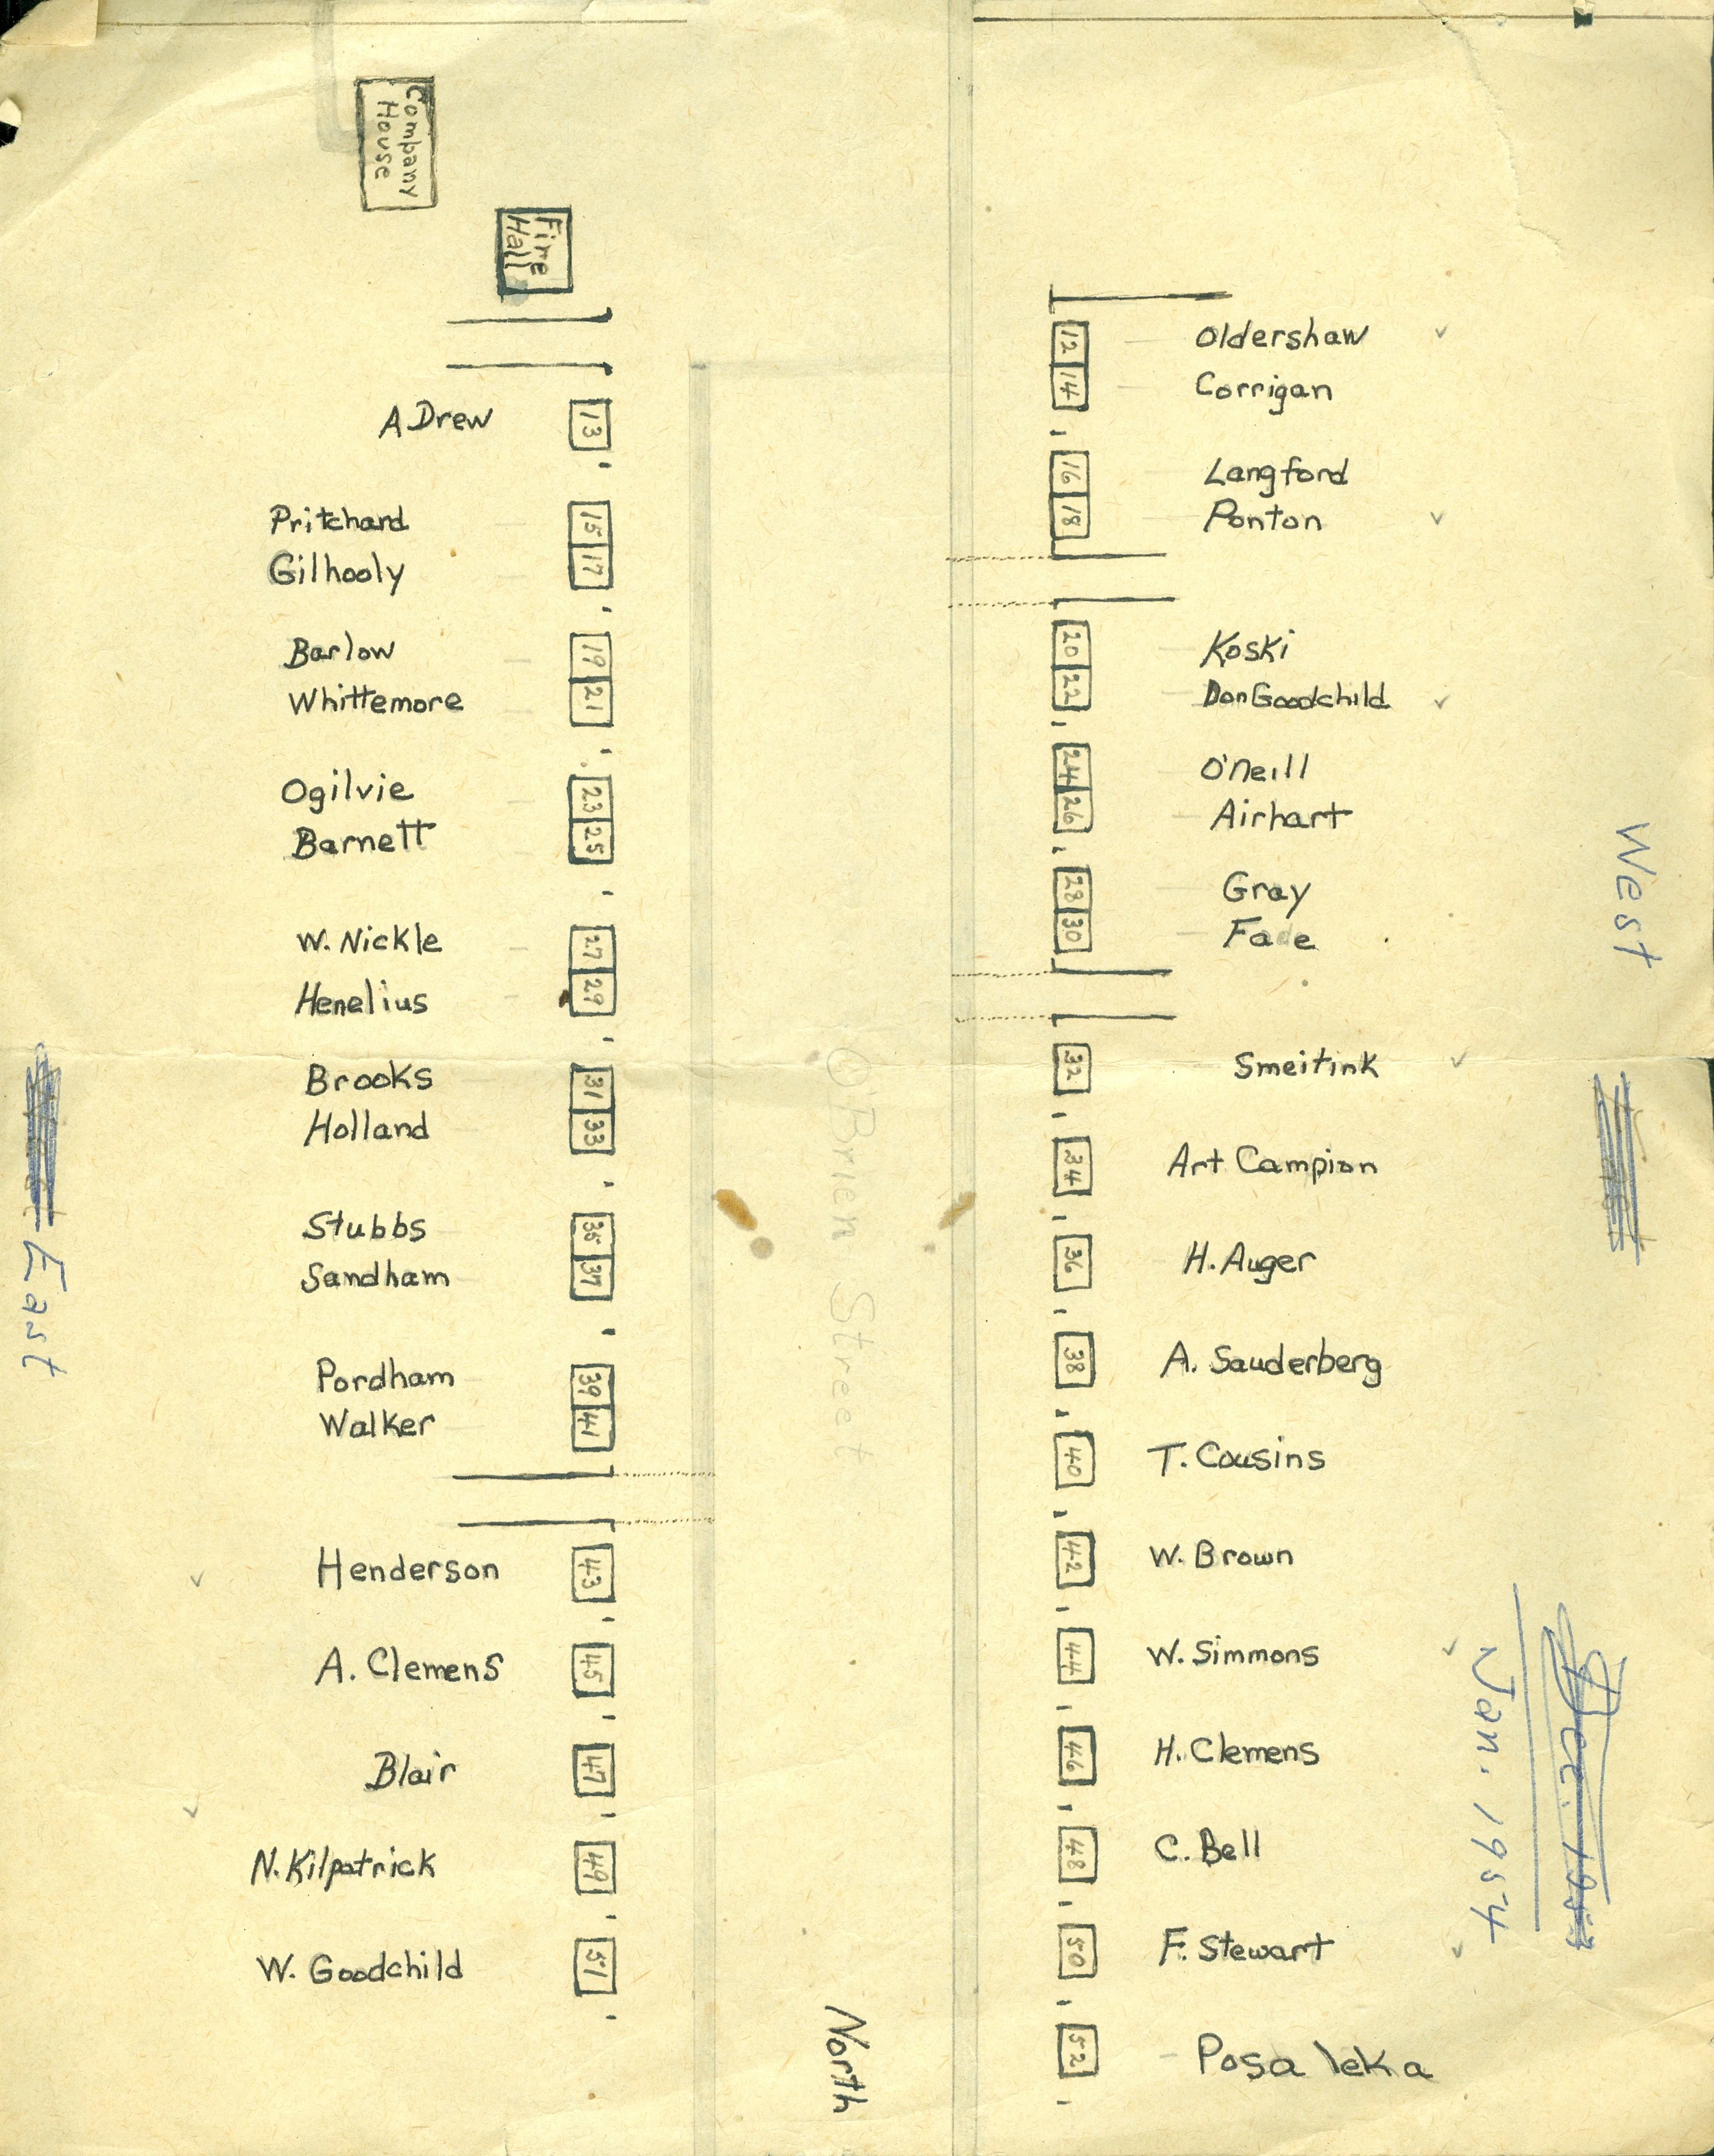 Company
House
Fire
Hall
A Drew 13
Pritchard 15
Gilhooly 17
Barlow 19
Whittemore 21
Ogilvie 23
Barnett 25
W. Nickle 27
Henelius 29
Brooks 31
Holland 33
Stubbs 35
Sandham 37
Pordham 39
Walker 41
Henderson 43
A. Clemens 45
Blair 47
N. Kilpatrick 49
W. Goodchild 51
East
O'Brien Street
North
12 Oldershaw
14 Corrigan
16 Langford
18 Ponton
20 Koski
22 Don Goodchild
24 O'Neill
26 Airhart
28 Gray
30 Fade
32 Smeitink
34 Art Campion
36 H. Auger
38 A. Sauderberg
40 T. Cousins
42 W. Brown
44 W. Simmons
46 H. Clemens
48 C. Bell
50 F. Stewart
52 Posaleka
West
Dec. 1953
Jan. 1954